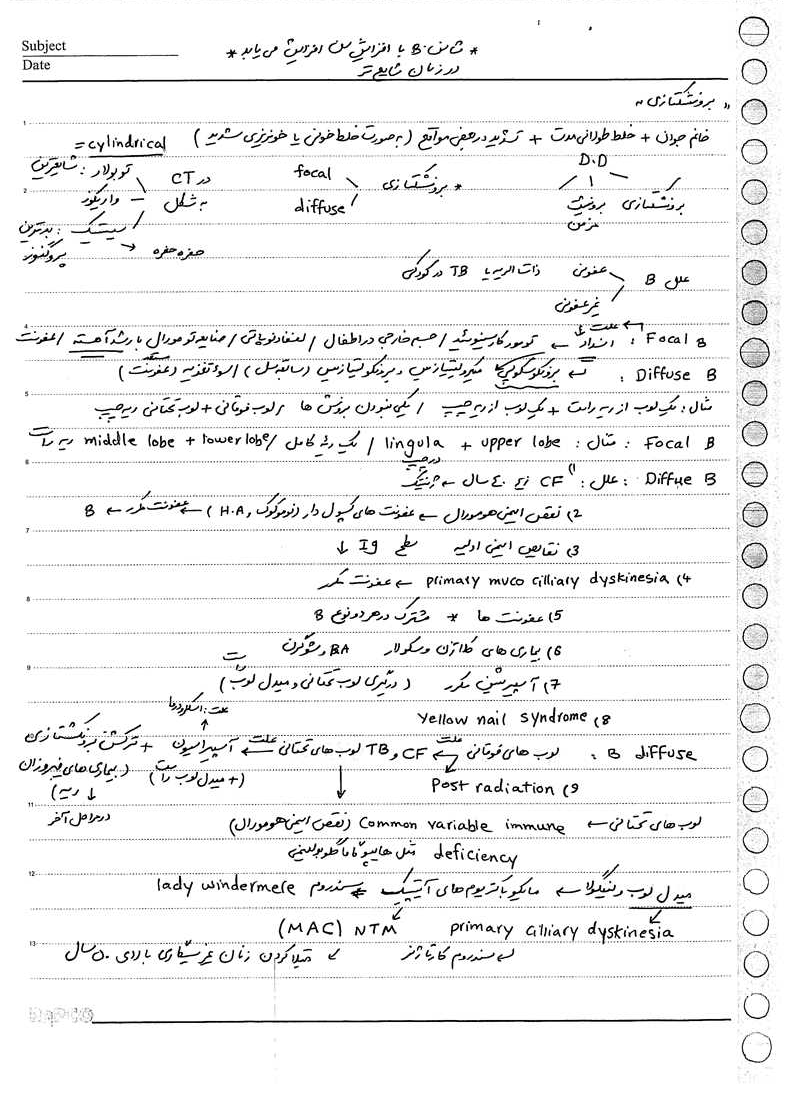 Subject
Date
* شانس B با افزایش سن افزایش می یابد *
در زنان شایع تر
" برونشکتازی "
خانم جوان + خلط طولانی مدت + تشدید در بعضی مواقع (به صورت خلط خونی یا خونریزی شدید)
D.D
برونشکتازی برونشیت مزمن
* برونشکتازی focal diffuse
در CT به شکل
توبولار : شایعترین = cylindrical
واریکوز
سیستیک : بدترین پروگنوز
حفره حفره
علل B عفونی ذات الریه یا TB در کودکی
غیر عفونی
Focal B : علت انسداد ← تومور کارسینوئید / جسم خارجی در اطفال / لنفادنوپاتی / ضایعه تومورال با رشد آهسته / عفونت
Diffuse B : برونکوسکوپی
مثال : یک لوب از ریه راست + یک لوب از ریه چپ / یکی نبودن برونش ها / لوب فوقانی + لوب تحتانی ریه چپ
Focal B : مثال : upper lobe + lingula در چپ / یک ریه کامل / middle lobe + lower lobe ریه راست
Diffuse B : علل : 1) CF زیر 40 سال ← ژنتیک
2) نقص ایمنی هومورال ← عفونت های کپسول دار (پنوموکوک و H.A) ← عفونت مکرر ← B
3) نقایص ایمنی اولیه سطح Ig ↓
4) primary muco cilliary dyskinesia ← عفونت مکرر
5) عفونت ها * مشترک در هر دو نوع B
6) بیماری های کلاژن وسکولار RA و شوگرن
7) آسپیریشن مکرر (درگیری لوب تحتانی و میدل لوب راست)
8) Yellow nail syndrome
علت : اسکلرودرما
B diffuse : لوب های فوقانی ← علت CF و TB لوب های تحتانی ← علت آسپیراسیون + ترکشن برونکشتازی
(+ میدل لوب راست) (بیماری های فیبروزان ریه)
↓ در مراحل آخر
9) Post radiation
لوب های تحتانی ← Common variable immune (نقص ایمنی هومورال)
deficiency مثل هایپوگاماگلوبولینمی
میدل لوب و لینگولا ← مایکوباکتریوم های آتیپیک ← سندروم lady windermere
primary cilliary dyskinesia NTM (MAC)
سندروم کارتاژنر ← مبتلا کردن زنان غیر سیگاری بالای 50 سال